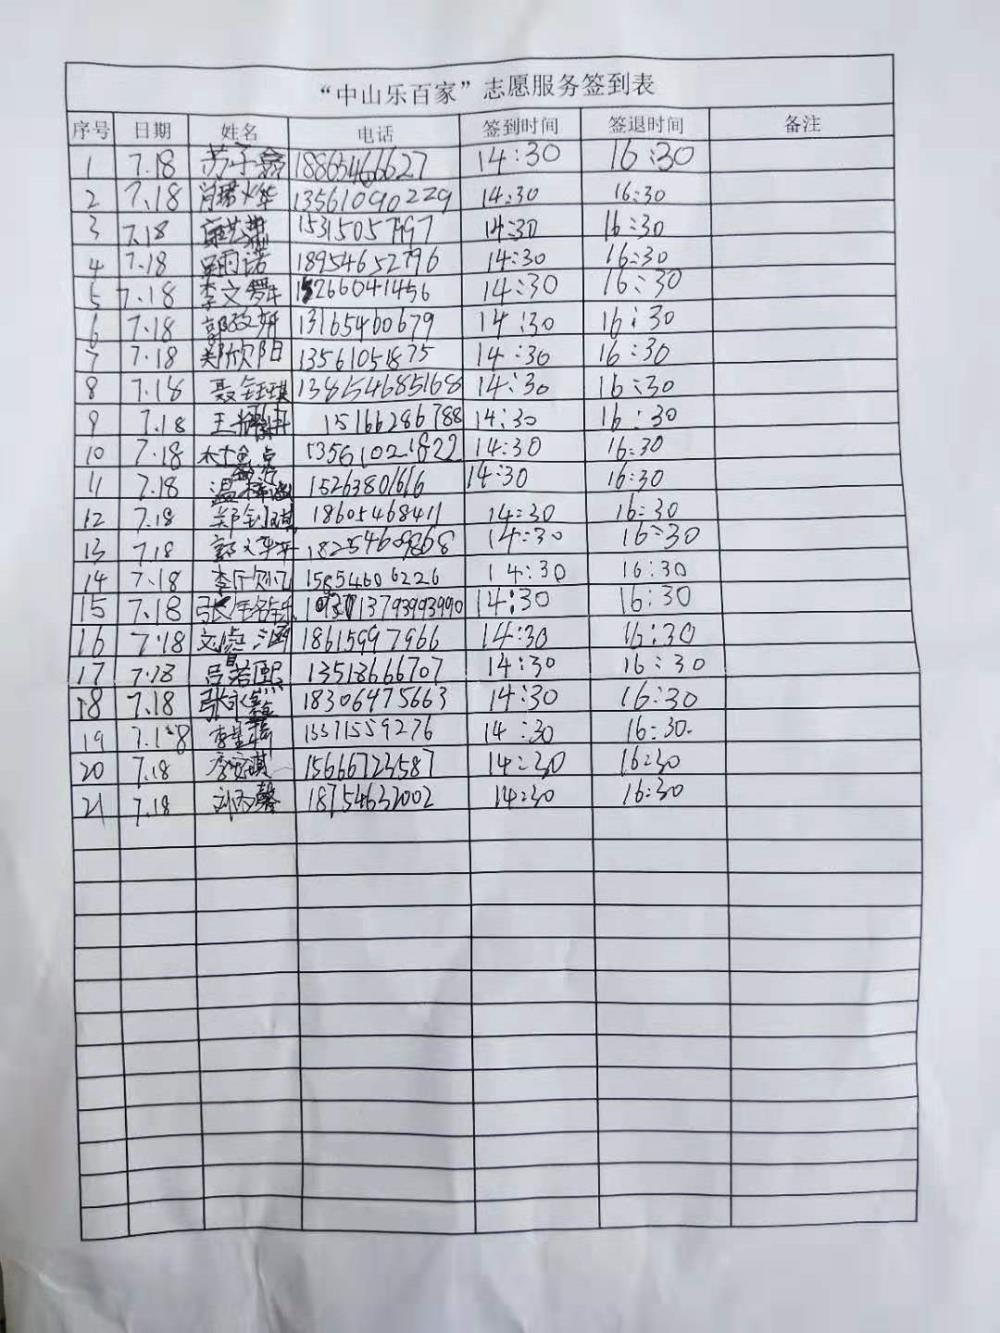 “中山乐百家”志愿服务签到表
序号 日期 姓名 电话 签到时间 签退时间 备注
1 7.18 苏子鑫 18865466627 14:30 16:30
2 7.18 13561090229 14:30 16:30
3 7.18 15315057997 14:30 16:30
4 7.18 雨诺 18954652796 14:30 16:30
5 7.18 李文舞 15266041456 14:30 16:30
6 7.18 郭政妍 13165460679 14:30 16:30
7 7.18 郑欣阳 13561051875 14:30 16:30
8 7.18 聂钰琪 13854685168 14:30 16:30
9 7.18 王 15166286788 14:30 16:30
10 7.18 13561021822 14:30 16:30
11 7.18 温 15263801616 14:30 16:30
12 7.18 郑钊琪 18605468411 14:30 16:30
13 7.18 郭 18254609868 14:30 16:30
14 7.18 李 15854606226 14:30 16:30
15 7.18 张 13793993990 14:30 16:30
16 7.18 18615997966 14:30 16:30
17 7.18 吕若熙 13518666707 14:30 16:30
18 7.18 张永 18306475663 14:30 16:30
19 7.18 李 13371559276 14:30 16:30
20 7.18 李安琪 15666723587 14:30 16:30
21 7.18 刘雨馨 18754632002 14:30 16:30